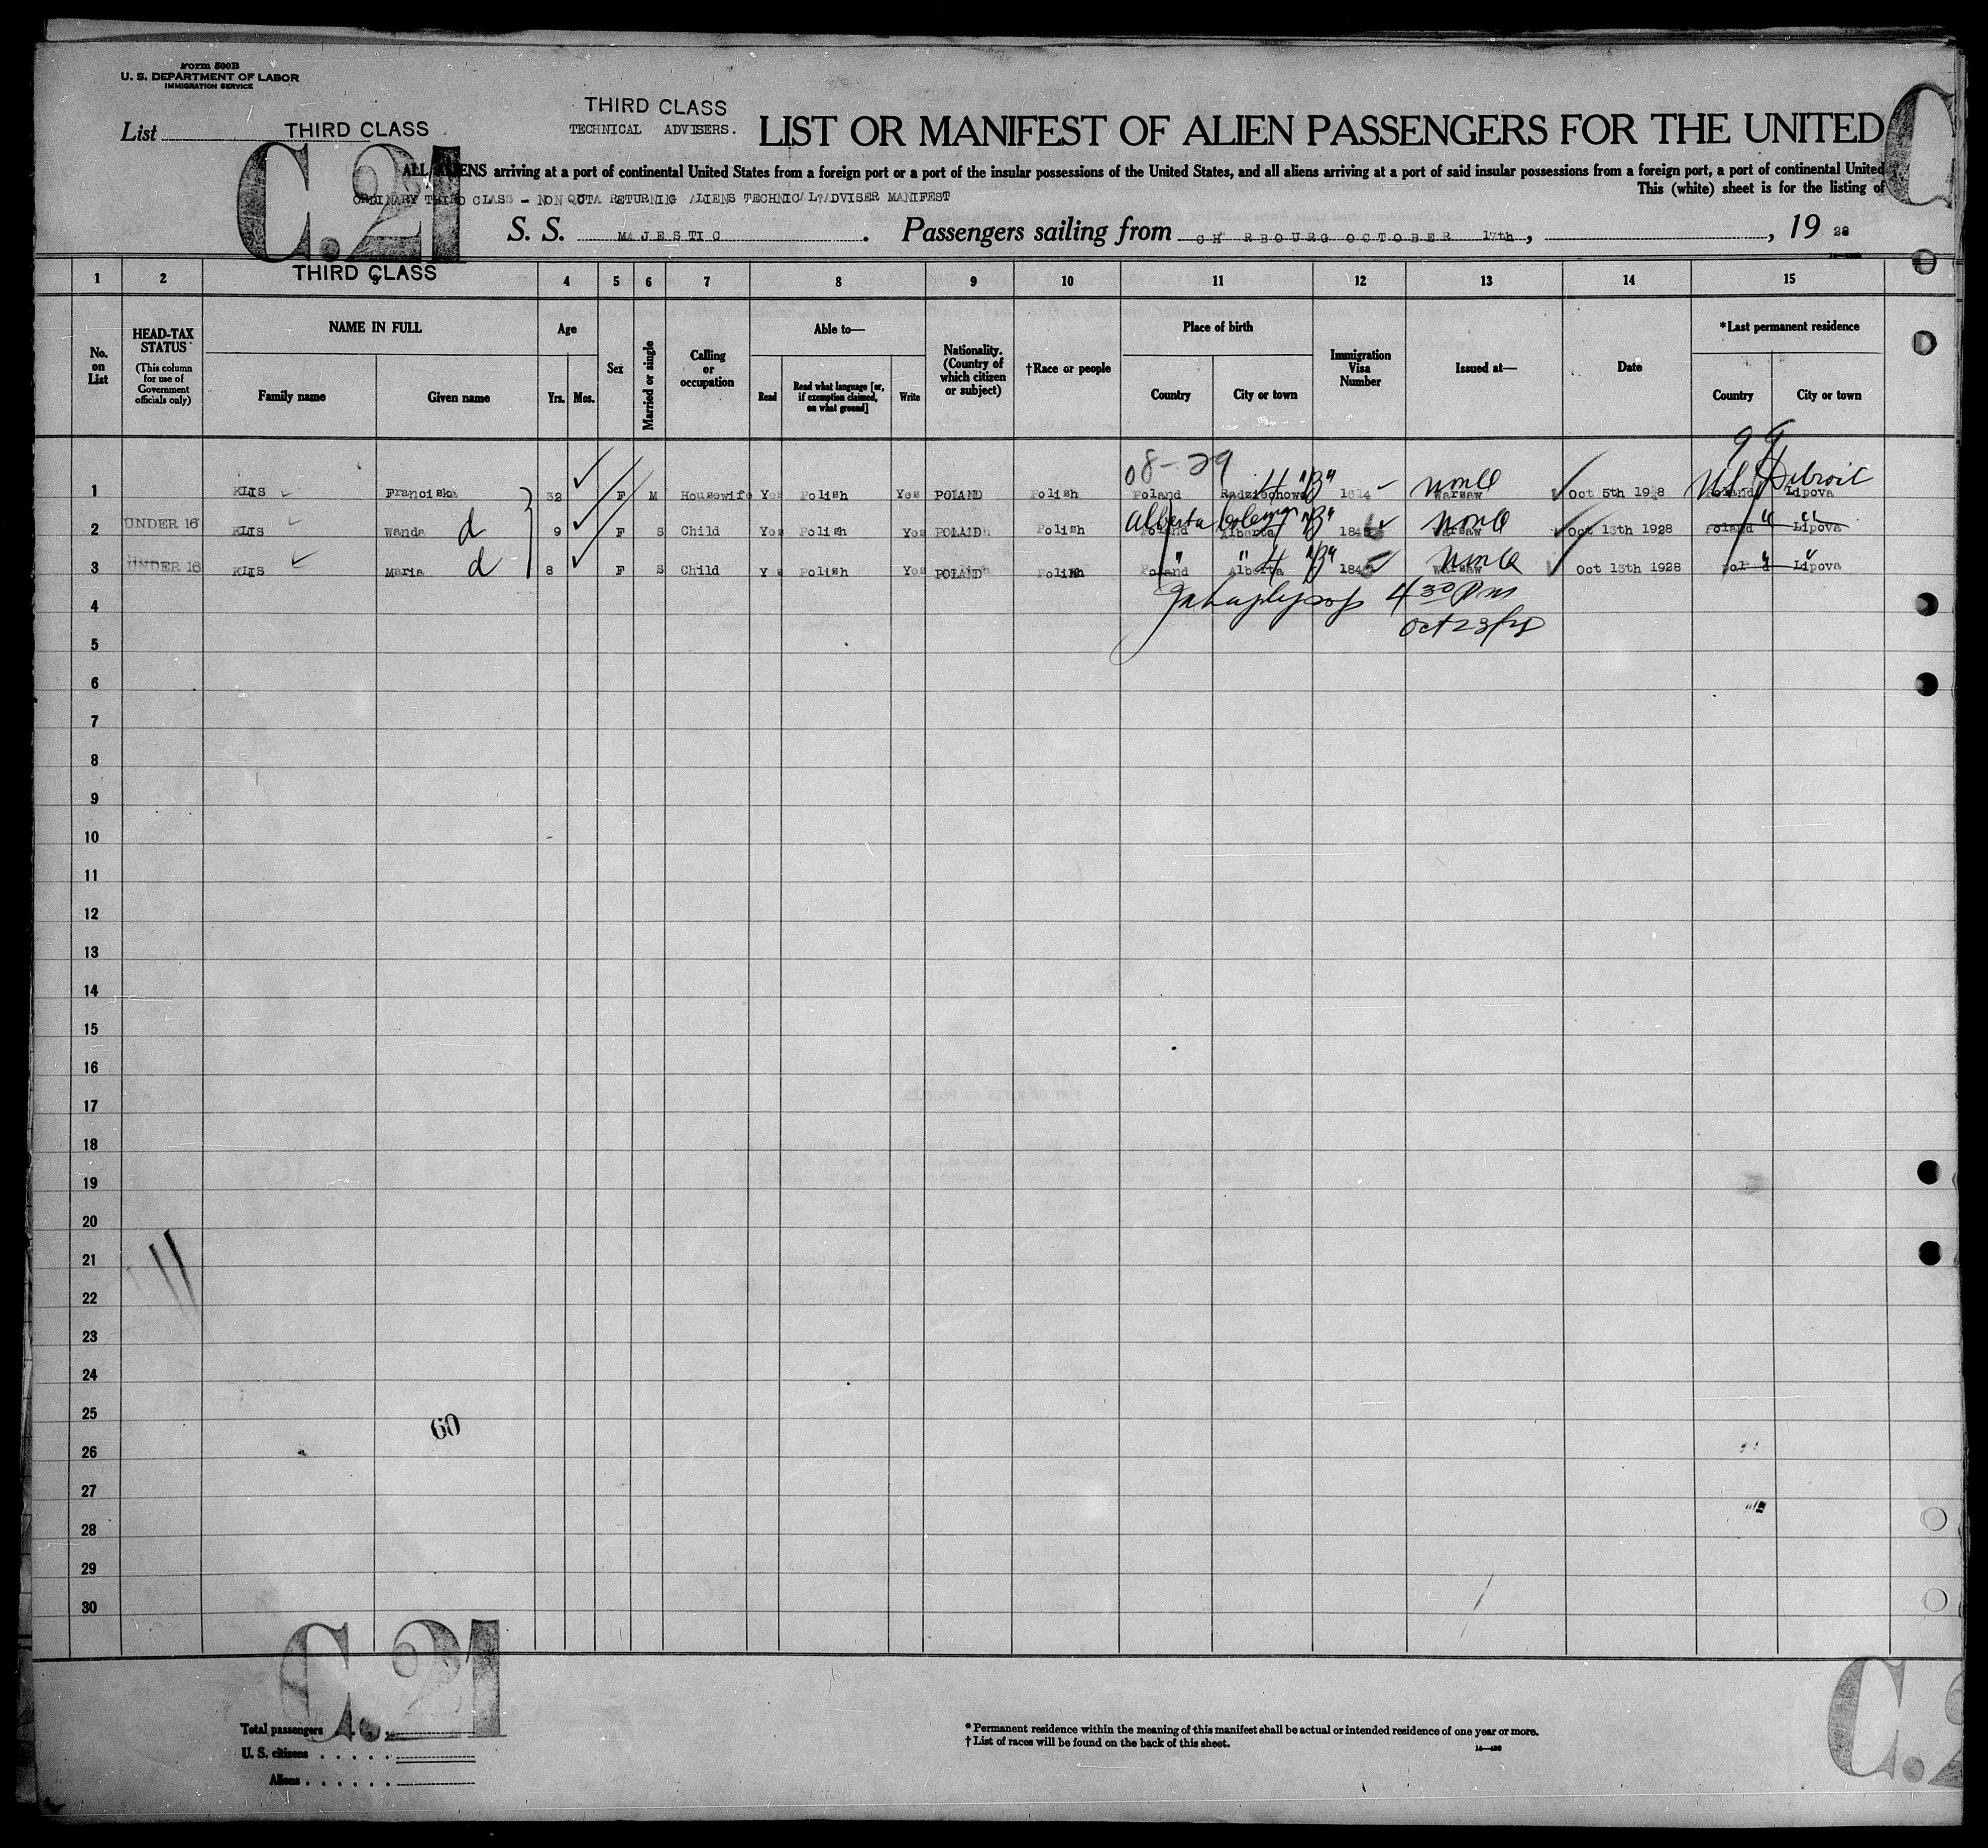 Form 500B
U. S. DEPARTMENT OF LABOR
IMMIGRATION SERVICE
List THIRD CLASS
THIRD CLASS
TECHNICAL ADVISERS.
LIST OR MANIFEST OF ALIEN PASSENGERS FOR THE UNITED
C.21
C
ALL ALIENS arriving at a port of continental United States from a foreign port or a port of the insular possessions of the United States, and all aliens arriving at a port of said insular possessions from a foreign port, a port of continental United
This (white) sheet is for the listing of
ORDINARY THIRD CLASS - NON QUTA RETURNIG ALIENS TECHNICAL ADVISER MANIFEST
S. S. MAJESTIC. Passengers sailing from CH RBOURG OCTOBER 17th, , 19 28
THIRD CLASS
1 2 3 4 5 6 7 8 9 10 11 12 13 14 15
No. on List
HEAD-TAX STATUS
(This column for use of Government officials only)
NAME IN FULL
Family name
Given name
Age
Yrs. Mos.
Sex
Married or single
Calling or occupation
Able to—
Read
Read what language [or, if exemption claimed, on what ground]
Write
Nationality. (Country of which citizen or subject)
†Race or people
Place of birth
Country
City or town
Immigration Visa Number
Issued at—
Date
*Last permanent residence
Country
City or town
9 9
08-29
1 KLIS Franciska 32 F M Housewife Yes Polish Yes POLAND Polish Poland Radziechowy 4 "B" 1614 Warsaw Oct 5th 1928 US Detroit Poland Lipova
2 UNDER 16 KLIS Wanda d 9 F S Child Yes Polish Yes POLAND Polish Alberta Coleman Poland Alberta 4 "B" Warsaw Oct 13th 1928 " " Poland Lipova
3 UNDER 16 KLIS Maria d 8 F S Child Yes Polish Yes POLAND Polish " " Poland Alberta 4 "B" Warsaw Oct 13th 1928 " " Lipova
4 4 30 Pm
5 Oct 23/28
6
7
8
9
10
11
12
13
14
15
16
17
18
19
20
21
22
23
24
25
60
26
27
28
29
30
C.21
C.2
Total passengers
U. S. citizens
Aliens
* Permanent residence within the meaning of this manifest shall be actual or intended residence of one year or more.
† List of races will be found on the back of this sheet.